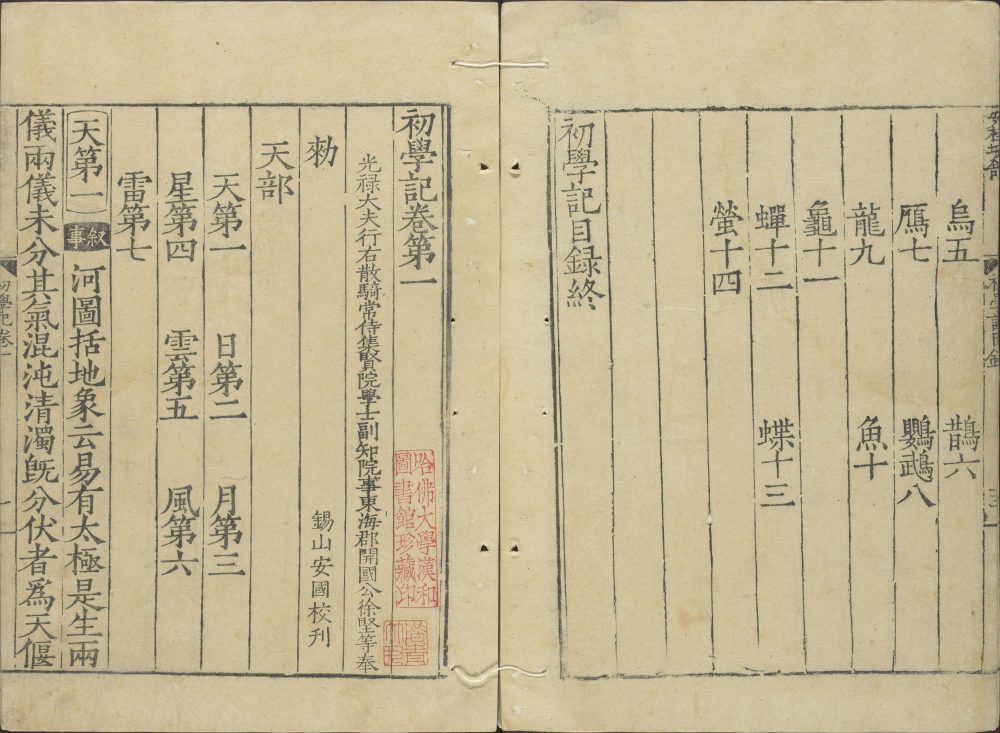 烏五　鵲六
鴈七　鸚鵡八
龍九　魚十
龜十一
蟬十二　蝶十三
螢十四
初學記目録終
初學記卷第一
光禄大夫行右散騎常侍集賢院學士副知院事東海郡開國公徐堅等奉
勑　錫山安國校刊
天部
天第一　日第二　月第三
星第四　雲第五　風第六
雷第七
天第一 叙事 河圖括地象云易有太極是生兩
儀兩儀未分其氣混沌清濁既分伏者爲天偃
初學記卷一
哈佛大學漢和
圖書館珍藏印